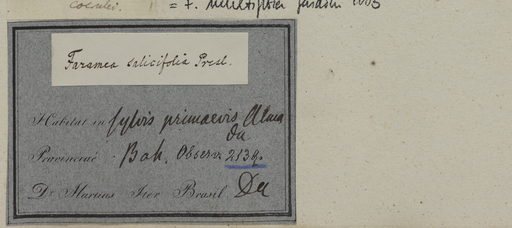 coerulei. = F. multiflora
Faramea salicifolia Presl.
Habitat in sylvis primaevis Alma
du
Provinciae Bah. Observ. 2139.
Dr. Martius Iter Brasil. Du